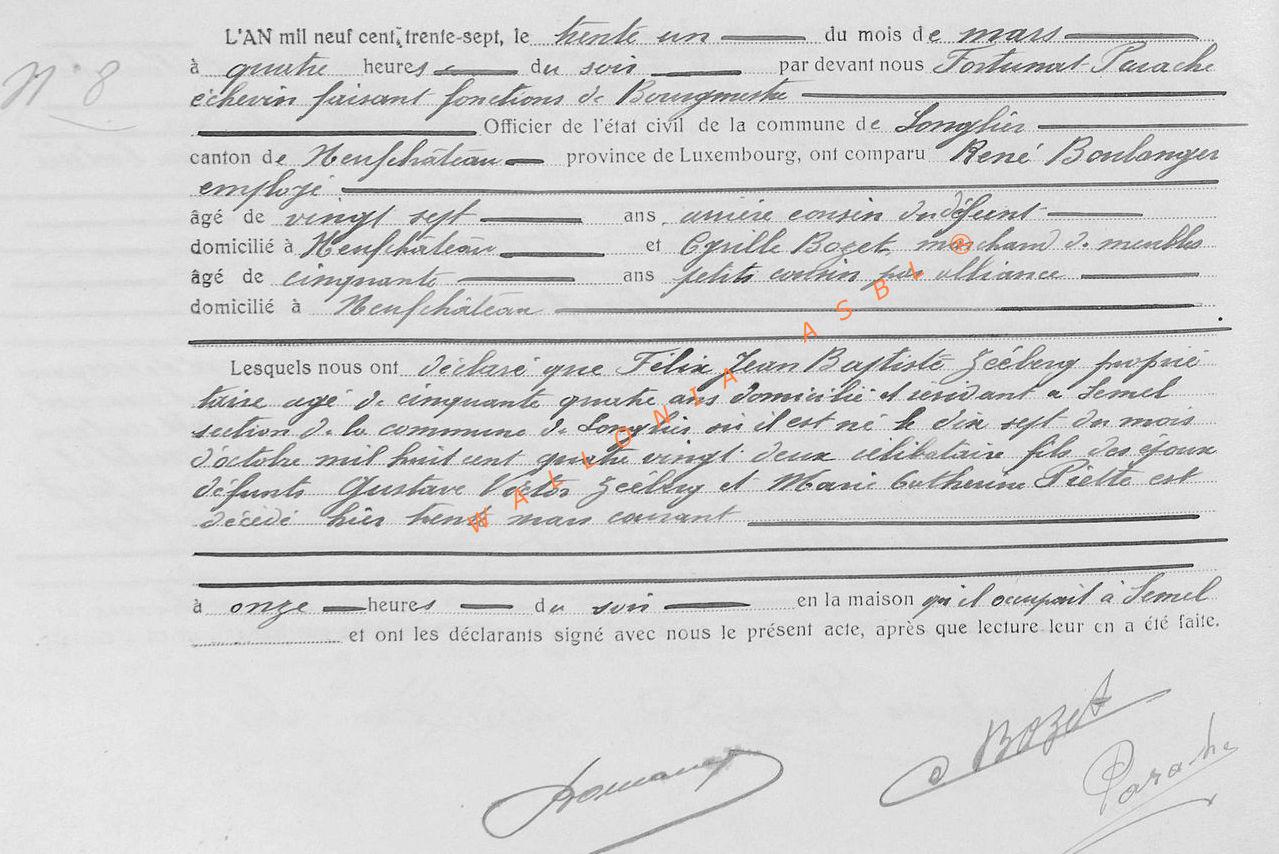 L'AN mil neuf cent trente-sept, le trente un du mois de mars
N° 8
à quatre heures du soir par devant nous Fortunat Parache
échevin faisant fonctions de Bourgmestre
Officier de l'état civil de la commune de Longlier
canton de Neufchâteau province de Luxembourg, ont comparu René Boulanger
employé
âgé de vingt sept ans arrière cousin du défunt
domicilié à Neufchâteau et Cyrille Bozet marchand de meubles
âgé de cinquante ans petits cousin par alliance
domicilié à Neufchâteau
Lesquels nous ont déclaré que Félix Jean Baptiste proprié
taire agé de cinquante quatre ans domicilié et résidant a Semel
section de la commune de Longlier où il est né le dix sept du mois
d'octobre mil huit cent quatre vingt deux célibataire fils des époux
défunts Gustave Victor et Marie Catherine Piette est
décédé hier trente mars courant
à onze heures du soir en la maison qu'il occupait à Semel
et ont les déclarants signé avec nous le présent acte, après que lecture leur en a été faite.
WALLONIA ASBL ®
C Bozet
Parache